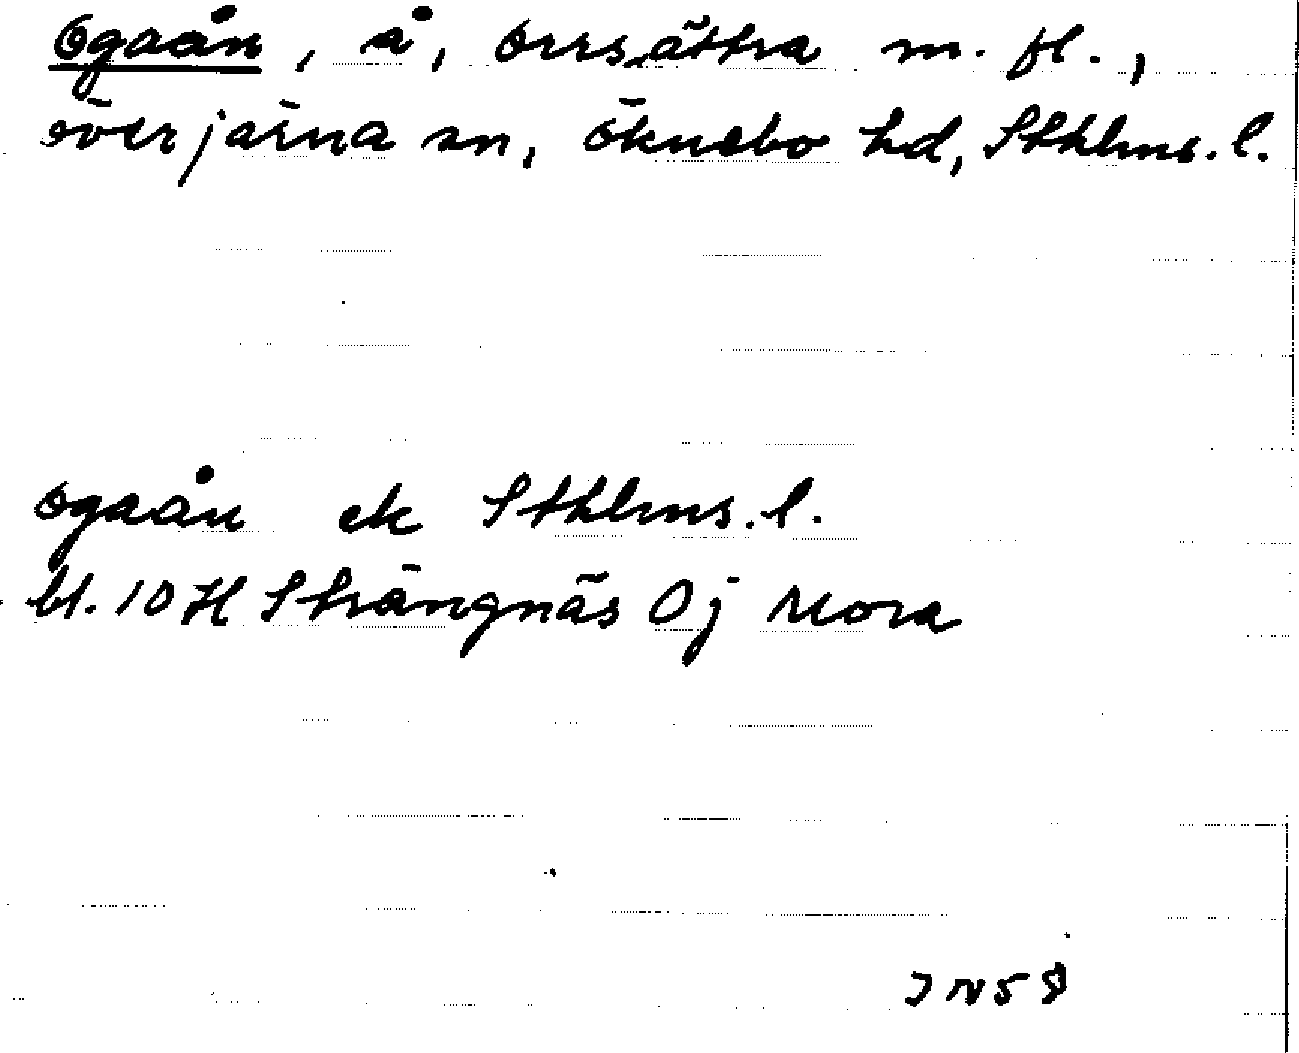 Ogaån, å, Orrsättra m. fl.,
överjärna sn, öknebo hd, Sthlms. l.
Ogaån ek Sthlms. l.
bl. 10 H Strängnäs 0j Mora
JN58